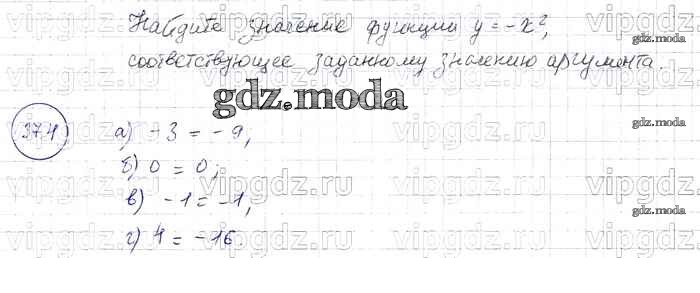 Найдите значение функции y = -x²,
соответствующее заданному значению аргумента.
gdz.moda
37.4
а) -3 = -9;
б) 0 = 0;
в) -1 = -1;
г) 4 = -16.
gdz.moda
gdz.moda
gdz.moda
vipgdz.ru vipgdz.ru vipgdz.ru
vipgdz.ru vipgdz.ru vipgdz.ru
vipgdz.ru vipgdz.ru vipgdz.ru
vipgdz.ru vipgdz.ru vipgdz.ru
vipgdz.ru vipgdz.ru vipgdz.ru